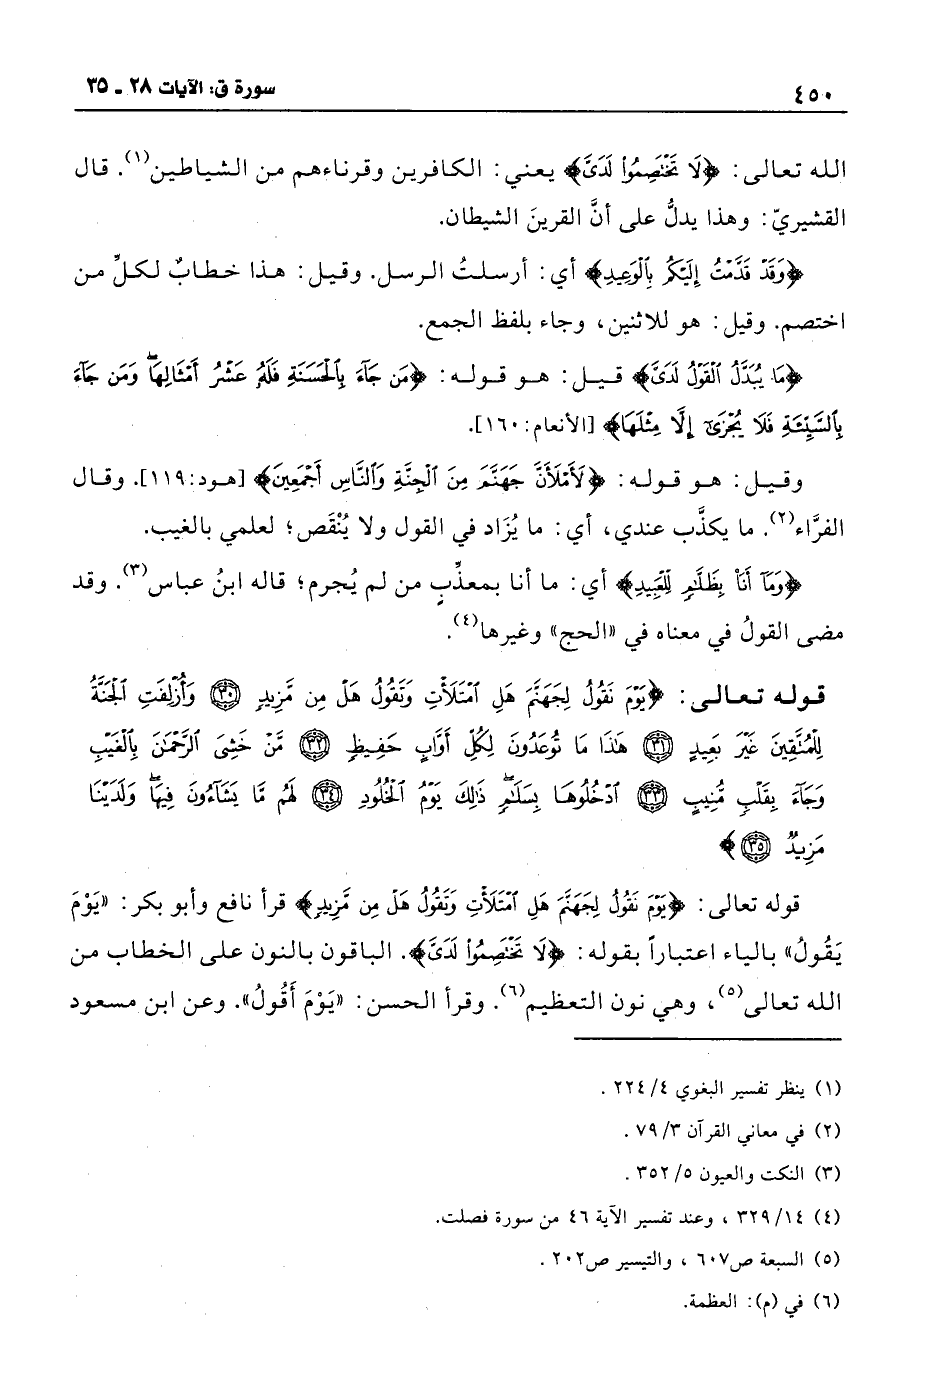 ٤٥٠ سورة ق: الآيات ٢٨ ـ ٣٥
الله تعالى: ﴿لَا تَخْتَصِمُوا۟ لَدَىَّ﴾ يعني: الكافرين وقرناءهم من الشياطين(١). قال
القشيريّ: وهذا يدلُّ على أنَّ القرينَ الشيطان.
﴿وَقَدْ قَدَّمْتُ إِلَيْكُم بِٱلْوَعِيدِ﴾ أي: أرسلتُ الرسل. وقيل: هذا خطابٌ لكلِّ من
اختصم. وقيل: هو للاثنين، وجاء بلفظ الجمع.
﴿مَا يُبَدَّلُ ٱلْقَوْلُ لَدَىَّ﴾ قيل: هو قوله: ﴿مَن جَآءَ بِٱلْحَسَنَةِ فَلَهُۥ عَشْرُ أَمْثَالِهَاۖ وَمَن جَآءَ
بِٱلسَّيِّئَةِ فَلَا يُجْزَىٰٓ إِلَّا مِثْلَهَا﴾ [الأنعام:١٦٠].
وقيل: هو قوله: ﴿لَأَمْلَأَنَّ جَهَنَّمَ مِنَ ٱلْجِنَّةِ وَٱلنَّاسِ أَجْمَعِينَ﴾ [هود:١١٩]. وقال
الفرَّاء(٢). ما يكذَّب عندي، أي: ما يُزَاد في القول ولا يُنْقَص؛ لعلمي بالغيب.
﴿وَمَآ أَنَا۠ بِظَلَّٰمٍ لِّلْعَبِيدِ﴾ أي: ما أنا بمعذِّبٍ من لم يُجرم؛ قاله ابنُ عباس(٣). وقد
مضى القولُ في معناه في «الحج» وغيرها(٤).
قوله تعالى: ﴿يَوْمَ نَقُولُ لِجَهَنَّمَ هَلِ ٱمْتَلَأْتِ وَتَقُولُ هَلْ مِن مَّزِيدٍ ٣٠ وَأُزْلِفَتِ ٱلْجَنَّةُ
لِلْمُتَّقِينَ غَيْرَ بَعِيدٍ ٣١ هَٰذَا مَا تُوعَدُونَ لِكُلِّ أَوَّابٍ حَفِيظٍ ٣٢ مَّنْ خَشِىَ ٱلرَّحْمَٰنَ بِٱلْغَيْبِ
وَجَآءَ بِقَلْبٍ مُّنِيبٍ ٣٣ ٱدْخُلُوهَا بِسَلَٰمٍۖ ذَٰلِكَ يَوْمُ ٱلْخُلُودِ ٣٤ لَهُم مَّا يَشَآءُونَ فِيهَاۖ وَلَدَيْنَا
مَزِيدٌ ٣٥﴾
قوله تعالى: ﴿يَوْمَ نَقُولُ لِجَهَنَّمَ هَلِ ٱمْتَلَأْتِ وَتَقُولُ هَلْ مِن مَّزِيدٍ﴾ قرأ نافع وأبو بكر: «يَوْمَ
يَقُولُ» بالياء اعتباراً بقوله: ﴿لَا تَخْتَصِمُوا۟ لَدَىَّ﴾. الباقون بالنون على الخطاب من
الله تعالى(٥)، وهي نون التعظيم(٦). وقرأ الحسن: «يَوْمَ أَقُولُ». وعن ابن مسعود
(١) ينظر تفسير البغوي ٤/ ٢٢٤ .
(٢) في معاني القرآن ٣/ ٧٩ .
(٣) النكت والعيون ٥/ ٣٥٢ .
(٤) ١٤/ ٣٢٩ ، وعند تفسير الآية ٤٦ من سورة فصلت.
(٥) السبعة ص٦٠٧ ، والتيسير ص٢٠٢ .
(٦) في (م): العظمة.